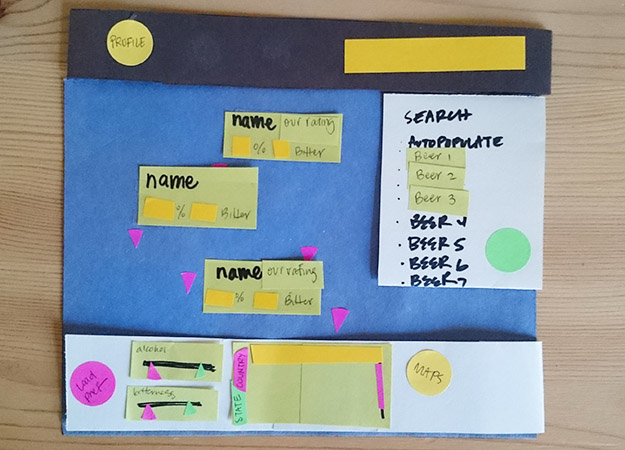 PROFILE
name our rating
% Bitter
name
% Bitter
name our rating
% Bitter
SEARCH
AUTOPOPULATE
· Beer 1
· Beer 2
· Beer 3
· BEER 4
· BEER 5
· BEER 6
· BEER 7
alcohol
bitterness
load
pref
COUNTRY
STATE
MAPS